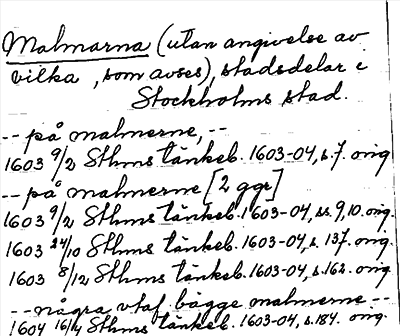 Malmarna (utan angivelse av
vilka, som avses), stadsdelar i
Stockholms stad.
-- på malmerne, --
1603 9/2 Sthms tänkeb. 1603-04, s. 7. orig
-- på malmerne [2 ggr]
1603 9/2 Sthms tänkeb. 1603-04, ss. 9, 10. orig.
1603 24/10 Sthms tänkeb. 1603-04, s. 137. orig.
1603 8/12 Sthms tänkeb. 1603-04, s. 162. orig
-- några utaf bägge malmerne --
1604 16/4 Sthms tänkeb. 1603-04, s. 184. orig.